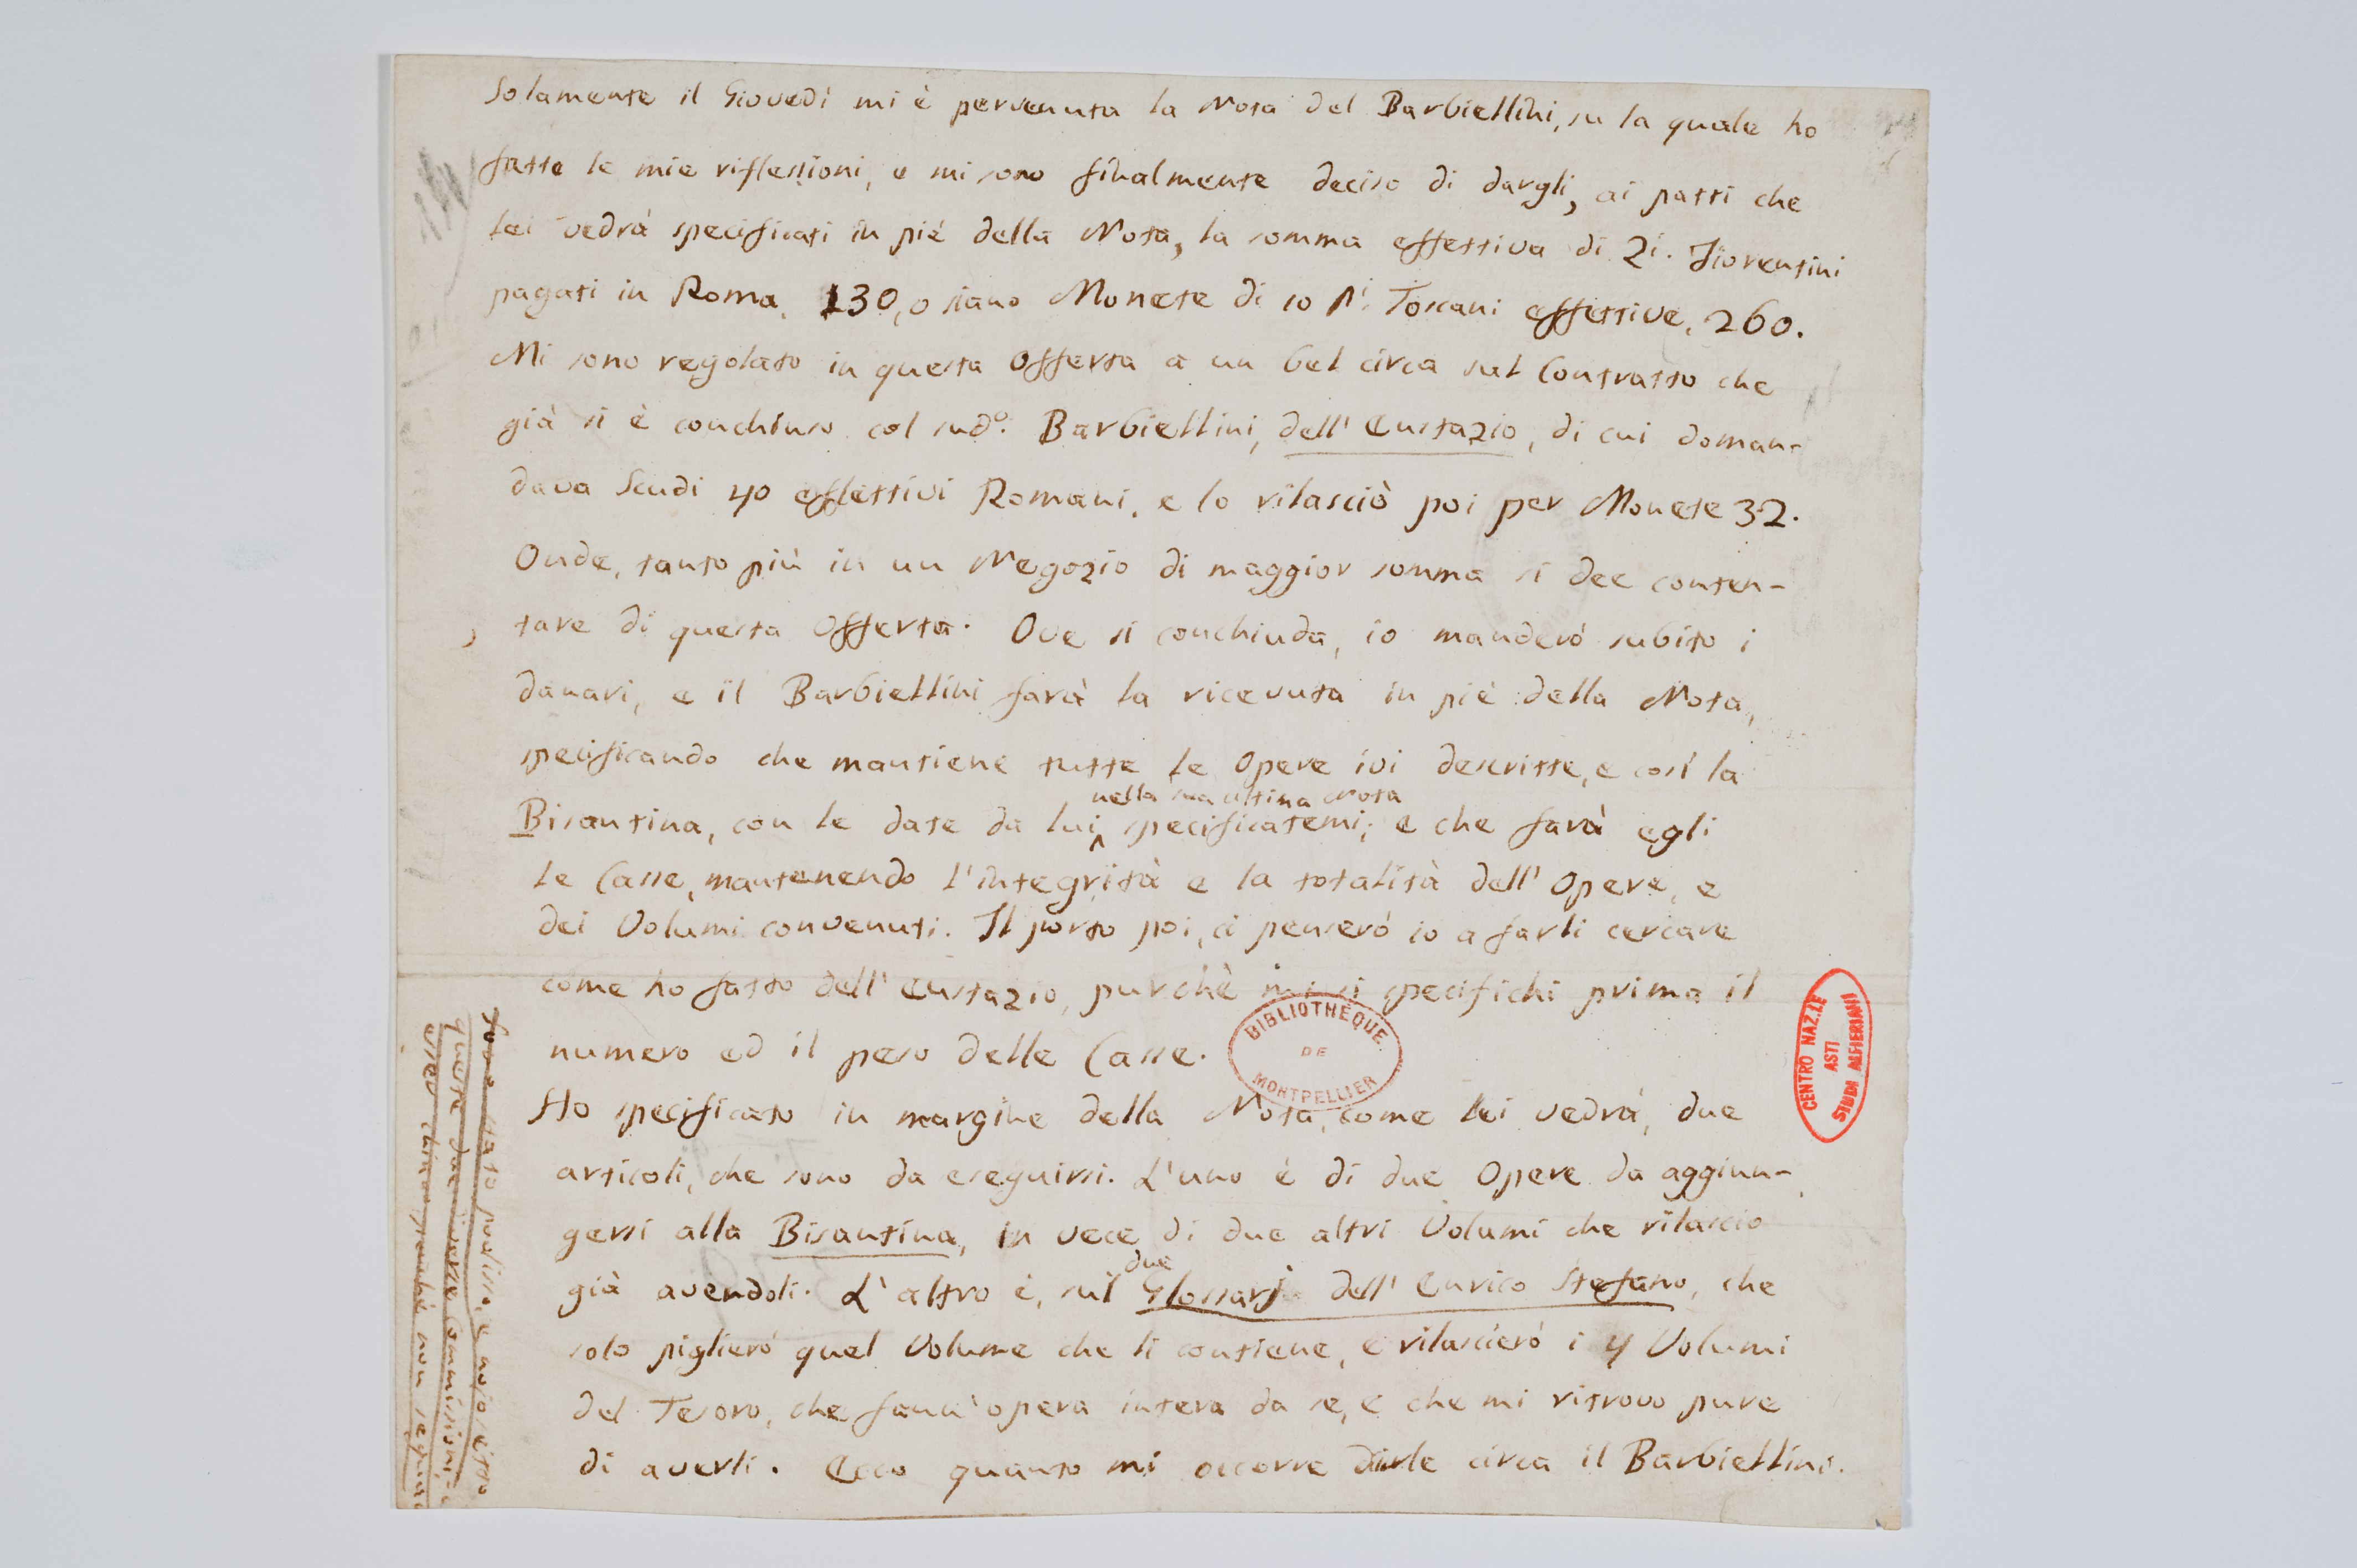 Solamente il Giovedì mi è pervenuta la Nota del Barbiellini, su la quale ho
fatte le mie riflessioni, e mi sono finalmente deciso di dargli, ai patti che
Lei vedrà specificati in piè della Nota, la somma effettiva di Zi. Fiorentini
pagati in Roma, 130, o siano Monete di 10 Pi. Toscani effettive, 260.
Mi sono regolato in questa offerta a un bel circa sul Contratto che
già si è conchiuso col sudo. Barbiellini, dell' Eustazio, di cui doman-
dava Scudi 40 effettivi Romani, e lo rilasciò poi per Monete 32.
Onde, tanto più in un Negozio di maggior somma si dee conten-
tare di questa offerta. Ove si conchiuda, io manderò subito i
danari, e il Barbiellini farà la ricevuta in piè della Nota,
specificando che mantiene tutte le Opere ivi descritte, e così la
nella sua ultima Nota
Bisantina, con le date da lui specificatemi; e che farà egli
le Casse, mantenendo l'integrità e la totalità dell' Opere, e
dei Volumi convenuti. Il porto poi, ci penserò io a farli cercare
come ho fatto dell' Eustazio, purchè mi si specifichi prima il
numero ed il peso delle Casse.
Ho specificato in margine della Nota, come Lei vedrà, due
articoli, che sono da eseguirsi. L'uno è di due Opere da aggiun-
gersi alla Bisantina, in vece di due altri Volumi che rilascio
due
già avendoli. L'altro è, sul Glossarj dell' Enrico Stefano, che
solo piglierò quel Volume che li contiene, e rilascierò i 4 Volumi
del Tesoro, che fann' opera intera da se, e che mi ritrovo pure
di averli. Ecco quanto mi occorre dirle circa il Barbiellini.
stato
queste due diverse Commissioni,
chiaro perchè non
BIBLIOTHÈQUE
DE
MONTPELLIER
CENTRO NAZ.LE
ASTI
STUDI ALFIERIANI